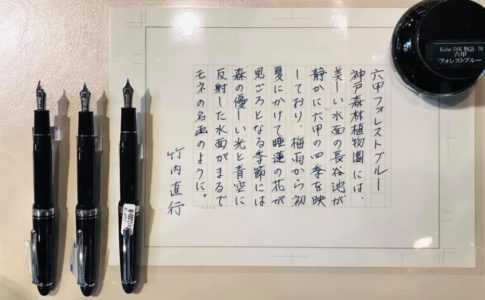 六甲フォレストブルー
神戸森林植物園には、
美しい水面の長谷池が
静かに六甲の四季を映
しており、梅雨から初
夏にかけて睡蓮の花が
見ごろとなる季節には
森の優しい光と青空に
反射した水面がまるで
モネの名画のように。
竹内直行
Kobe INK 物語 70
六甲
フォレストブルー